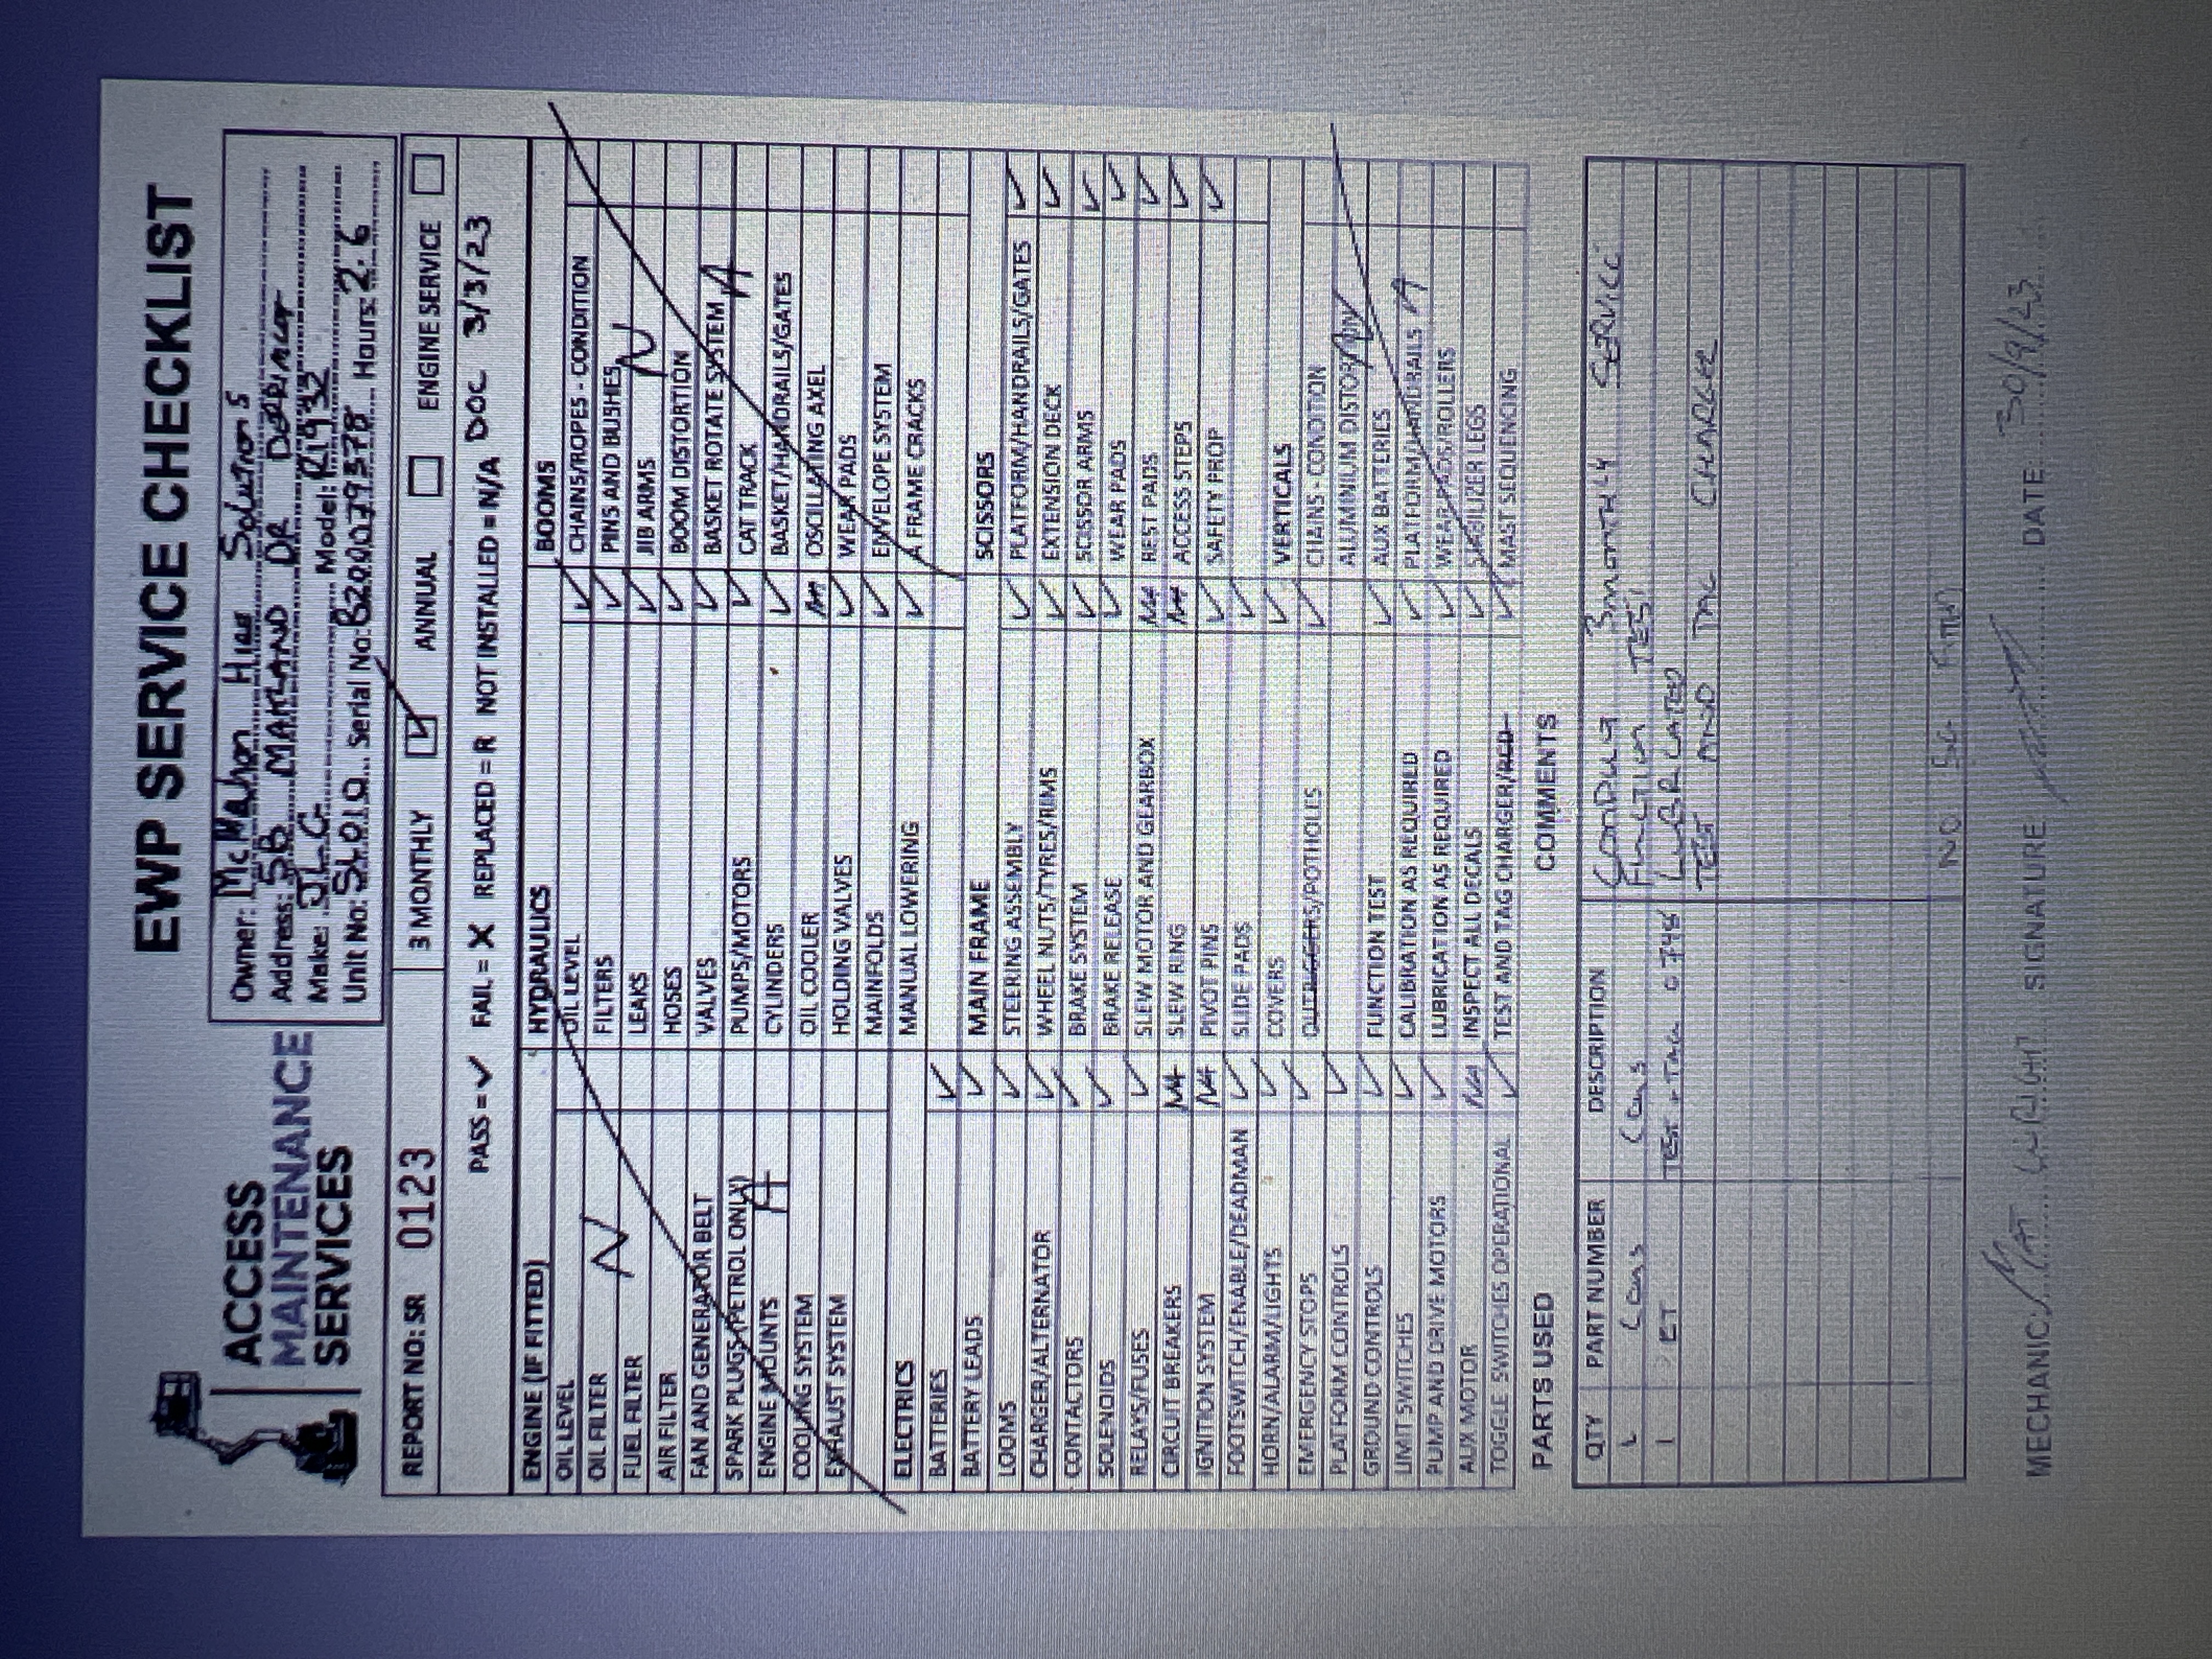 EWP SERVICE CHECKLIST
ACCESS
MAINTENANCE
SERVICES
Owner: McMahon Hire Solutions
Address: 5B MAITLAND DR DERRIMUT
Make: JLG Model: R1932
Unit No: SL010 Serial No: B200079578 Hours: 2.6
REPORT NO: SR 0123 3 MONTHLY ☑ ANNUAL ☐ ENGINE SERVICE ☐
PASS = ✓ FAIL = X REPLACED = R NOT INSTALLED = N/A DOC 3/3/23
ENGINE (IF FITTED)
OIL LEVEL
OIL FILTER
FUEL FILTER
AIR FILTER
FAN AND GENERATOR BELT
SPARK PLUGS (PETROL ONLY)
ENGINE MOUNTS
COOLING SYSTEM
EXHAUST SYSTEM
N A
ELECTRICS
BATTERIES ✓
BATTERY LEADS ✓
LOOMS ✓
CHARGER/ALTERNATOR ✓
CONTACTORS ✓
SOLENOIDS ✓
RELAYS/FUSES ✓
CIRCUIT BREAKERS NA
IGNITION SYSTEM NA
FOOTSWITCH/ENABLE/DEADMAN ✓
HORN/ALARM/LIGHTS ✓
EMERGENCY STOPS ✓
PLATFORM CONTROLS ✓
GROUND CONTROLS ✓
LIMIT SWITCHES ✓
PUMP AND DRIVE MOTORS ✓
AUX MOTOR NA
TOGGLE SWITCHES OPERATIONAL ✓
HYDRAULICS
OIL LEVEL ✓
FILTERS ✓
LEAKS ✓
HOSES ✓
VALVES ✓
PUMPS/MOTORS ✓
CYLINDERS ✓
OIL COOLER NA
HOLDING VALVES ✓
MAINFOLDS ✓
MANUAL LOWERING ✓
MAIN FRAME
STEERING ASSEMBLY ✓
WHEEL NUTS/TYRES/RIMS ✓
BRAKE SYSTEM ✓
BRAKE RELEASE ✓
SLEW MOTOR AND GEARBOX NA
SLEW RING NA
PIVOT PINS ✓
SLIDE PADS ✓
COVERS ✓
OUTRIGGERS/POTHOLES ✓
FUNCTION TEST ✓
CALIBRATION AS REQUIRED ✓
LUBRICATION AS REQUIRED ✓
INSPECT ALL DECALS ✓
TEST AND TAG CHARGER/RCD ✓
BOOMS
CHAINS/ROPES - CONDITION
PINS AND BUSHES
JIB ARMS
BOOM DISTORTION
BASKET ROTATE SYSTEM
CAT TRACK
BASKET/HANDRAILS/GATES
OSCILLATING AXEL
WEAR PADS
ENVELOPE SYSTEM
A FRAME CRACKS
N A
SCISSORS
PLATFORM/HANDRAILS/GATES ✓
EXTENSION DECK ✓
SCISSOR ARMS ✓
WEAR PADS ✓
REST PADS ✓
ACCESS STEPS ✓
SAFETY PROP ✓
VERTICALS
CHAINS - CONDITION
ALUMINIUM
AUX BATTERIES
PLATFORM/HANDRAILS
WEAR PADS/ROLLERS
STABILIZER LEGS
MAST SEQUENCING
PARTS USED
COMMENTS
QTY PART NUMBER DESCRIPTION
1 Cons Cons
1 ET TEST + TAG 0746
CONDUCT 3 MONTHLY SERVICE
FUNCTION TEST
LUBRICATED
TEST AND TAG CHARGER
NO
MECHANIC MAT SIGNATURE DATE: 30/9/23